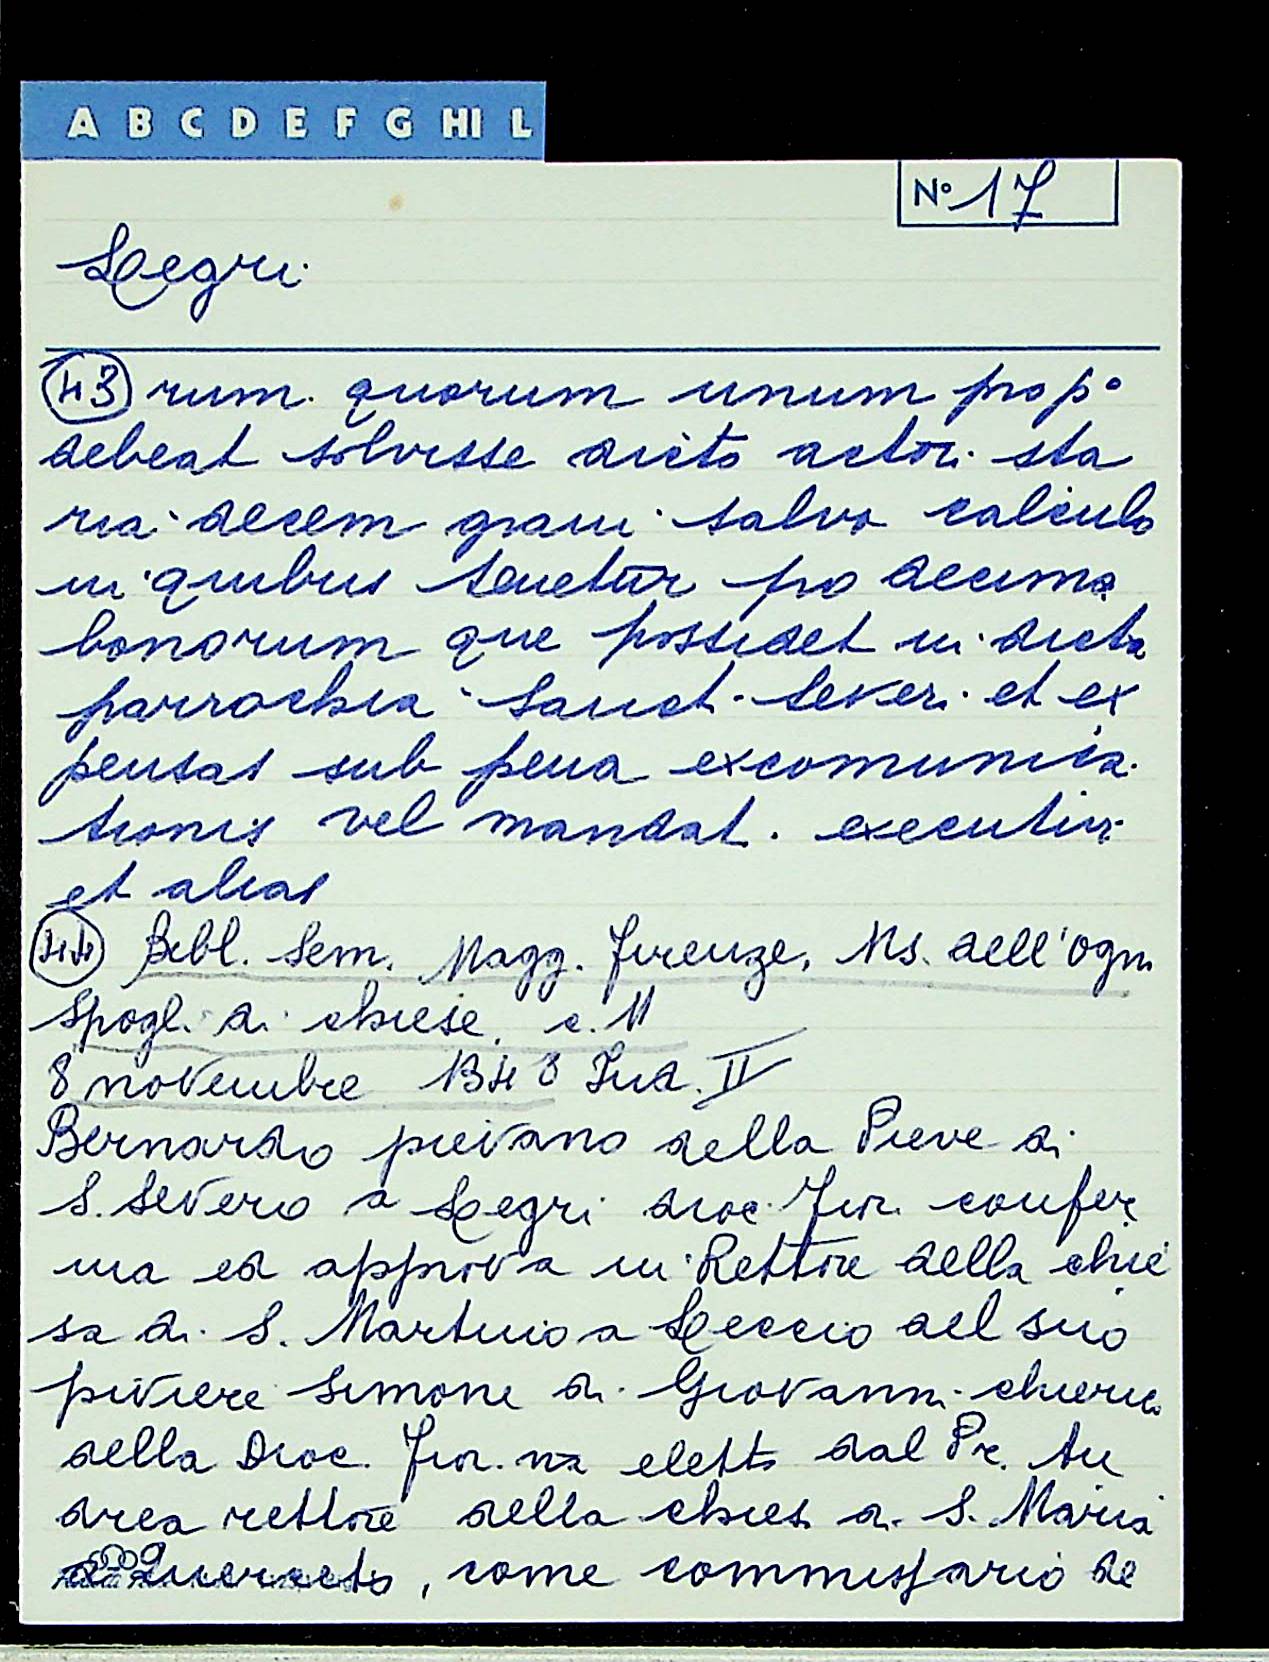 A B C D E F G HI L
N° 17
Legri
43 rum. quorum unum prop°
debeat solvisse dicto actori sta
ria decem grani salvo calculo
in quibus tenetur pro decima
bonorum que possidet in dicta
parrochia Sanct. Severi et ex
pensas sub pena excomunica
tionis vel mandat. executivi
et alias
44 Bibl. Sem. Magg. Firenze, Ms. dell'Ogn
Spogl. di chiese c. 11
8 novembre 1348 Ind. II
Bernardo pievano della Pieve di
S. Severo a Legri dioc. Fior. confer
ma ed approva in Rettore della chie
sa di S. Martino a Leccio del suo
piviere Simone di Giovanni chierico
della Dioc. Fior. na eletto dal Pr. An
drea rettore della chiesa di S. Maria
a Querceto, come commissario de